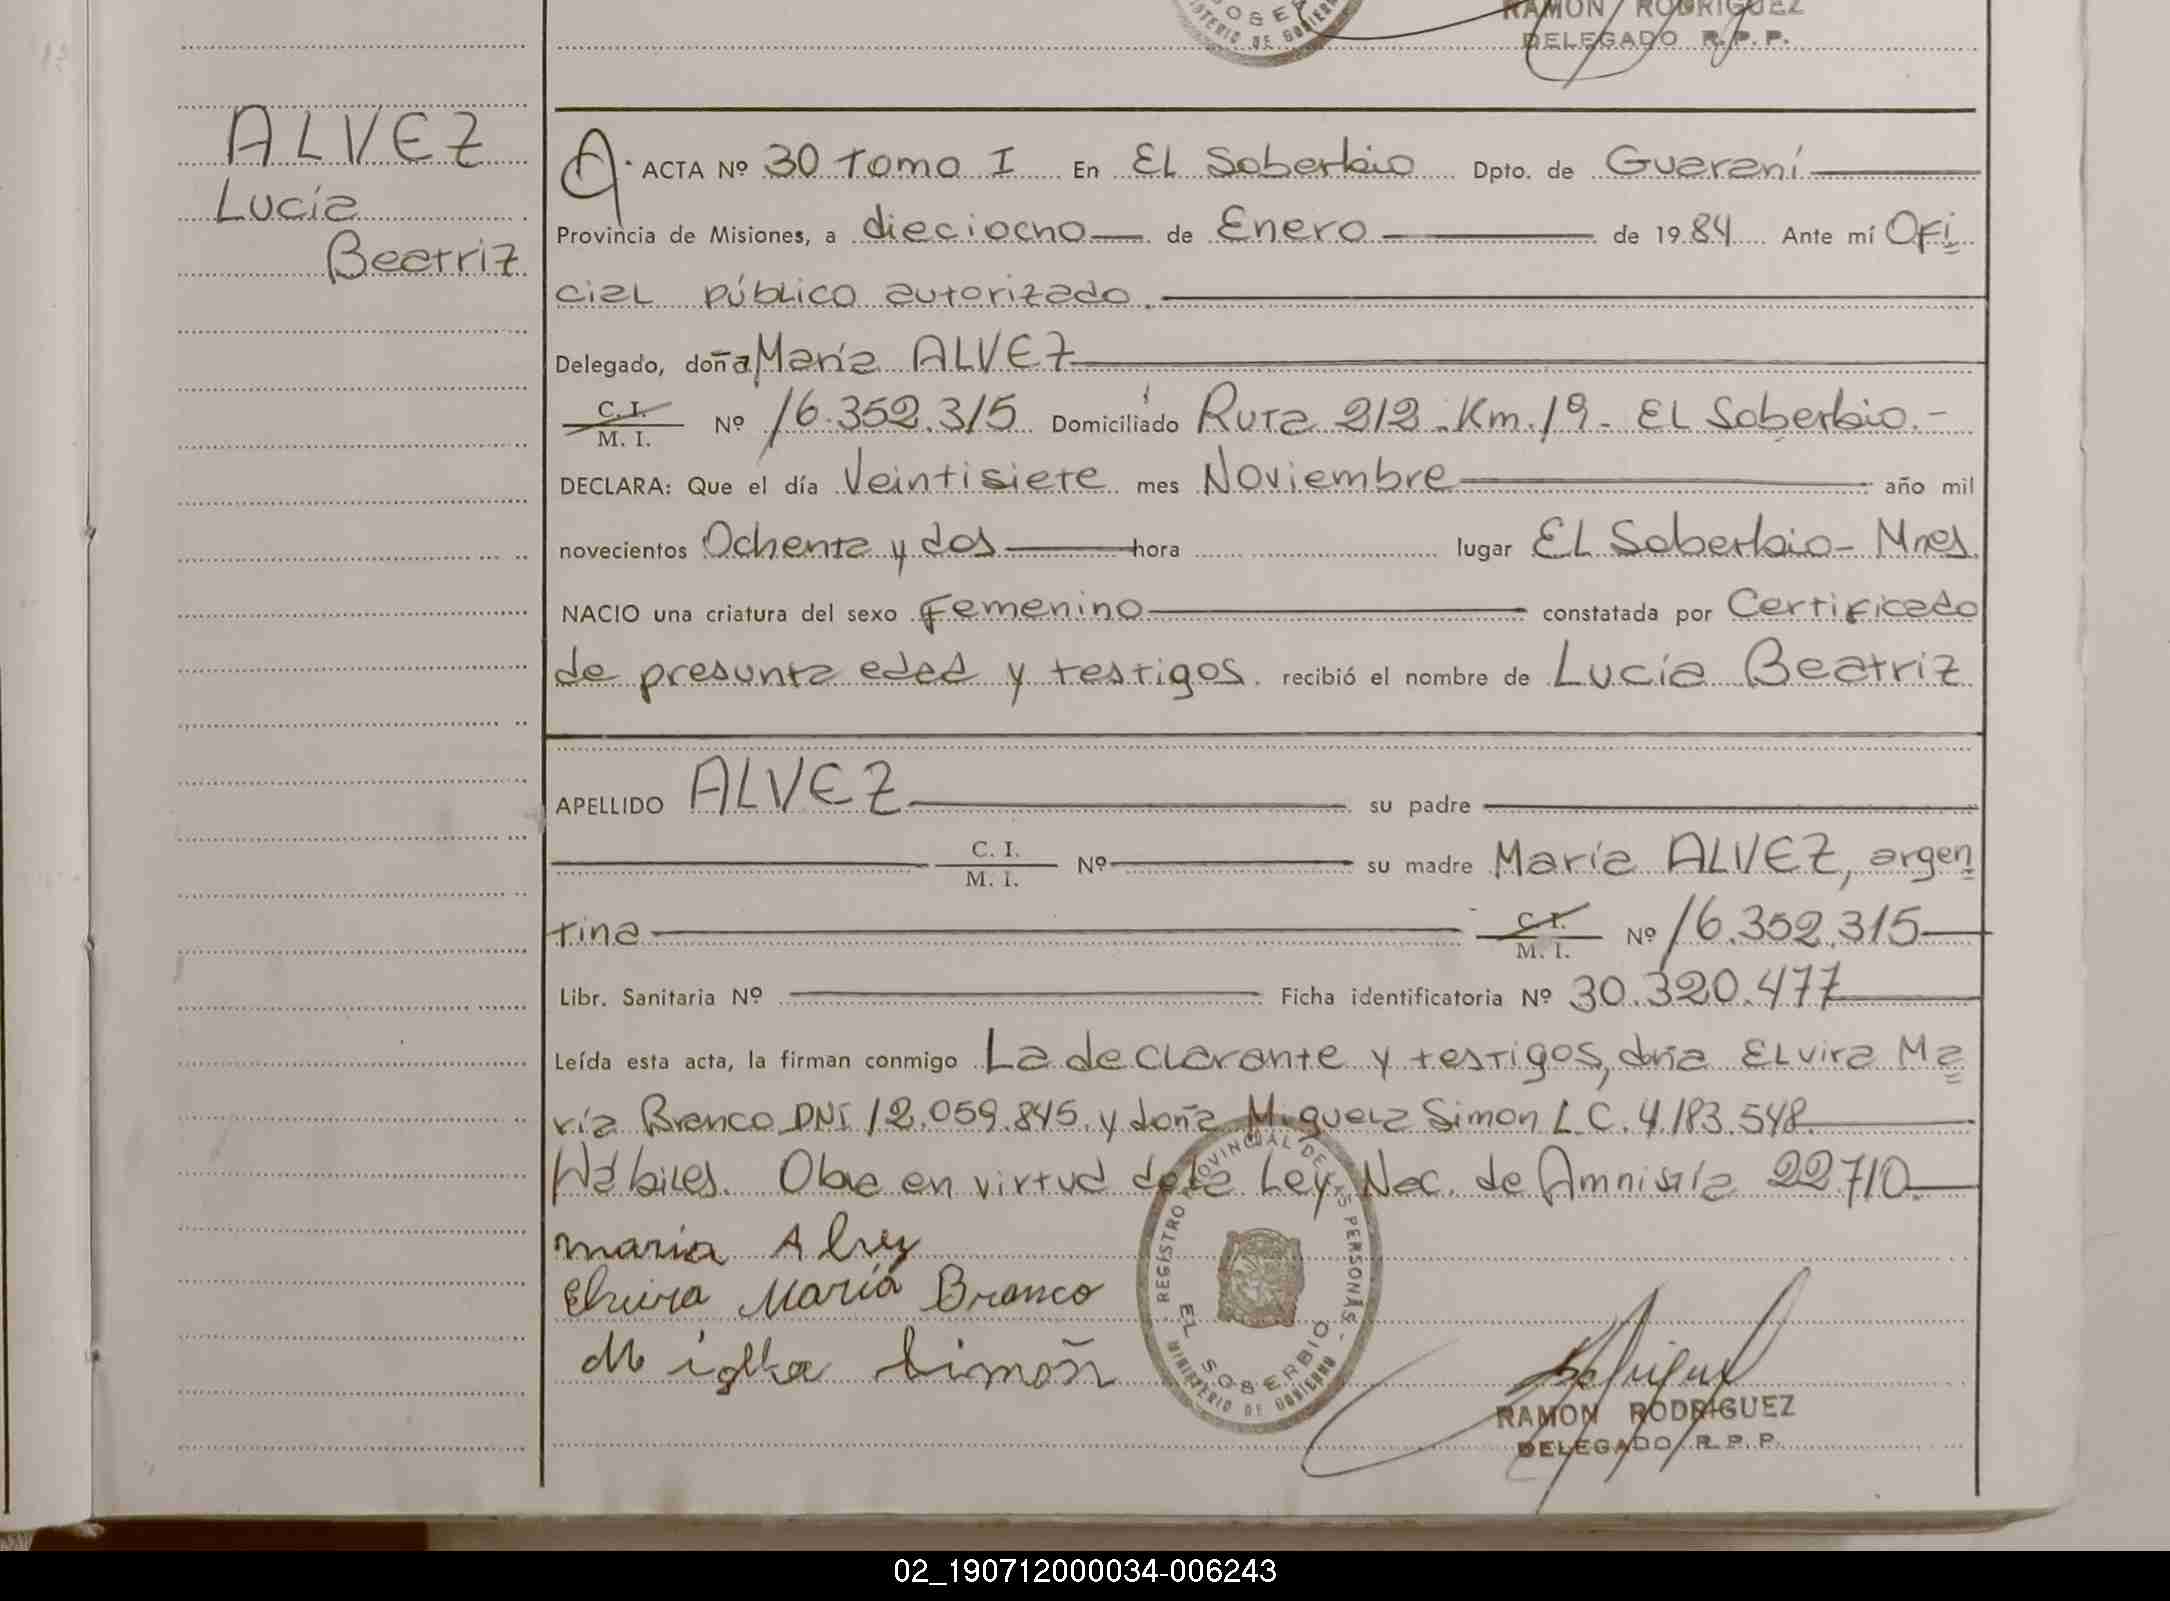 RAMON RODRIGUEZ
DELEGADO R.P.P.
ALVEZ
Lucía
Beatriz
ACTA Nº 30 Tomo I En EL Soberbio Dpto. de Guaraní
Provincia de Misiones, a dieciocho de Enero de 1984 Ante mí Ofi
cial público autorizado.
Delegado, doña María ALVEZ
C. I. / M. I. Nº 16.352.315 Domiciliado Ruta 212 - Km. 19 - EL Soberbio.-
DECLARA: Que el día Veintisiete mes Noviembre año mil
novecientos Ochenta y dos hora lugar EL Soberbio - Mnes.
NACIO una criatura del sexo femenino constatada por Certificado
de presunta edad y testigos recibió el nombre de Lucía Beatriz
APELLIDO ALVEZ su padre
C. I. / M. I. Nº su madre María ALVEZ, argen
tina C. I. / M. I. Nº 16.352.315
Libr. Sanitaria Nº Ficha identificatoria Nº 30.320.477
Leída esta acta, la firman conmigo La declarante y testigos, doña ELvira Ma
ría Branco DNI 12.059.845 y doña Miguela Simon L.C. 4.183.548
Hábiles. Obra en virtud de la Ley Nac. de Amnistía 22710.
maria Alvez
Elvira María Branco
Simoñ
REGISTRO PROVINCIAL DE LAS PERSONAS
EL SOBERBIO
MINISTERIO DE GOBIERNO
RAMON RODRIGUEZ
DELEGADO R.P.P.
02_190712000034-006243